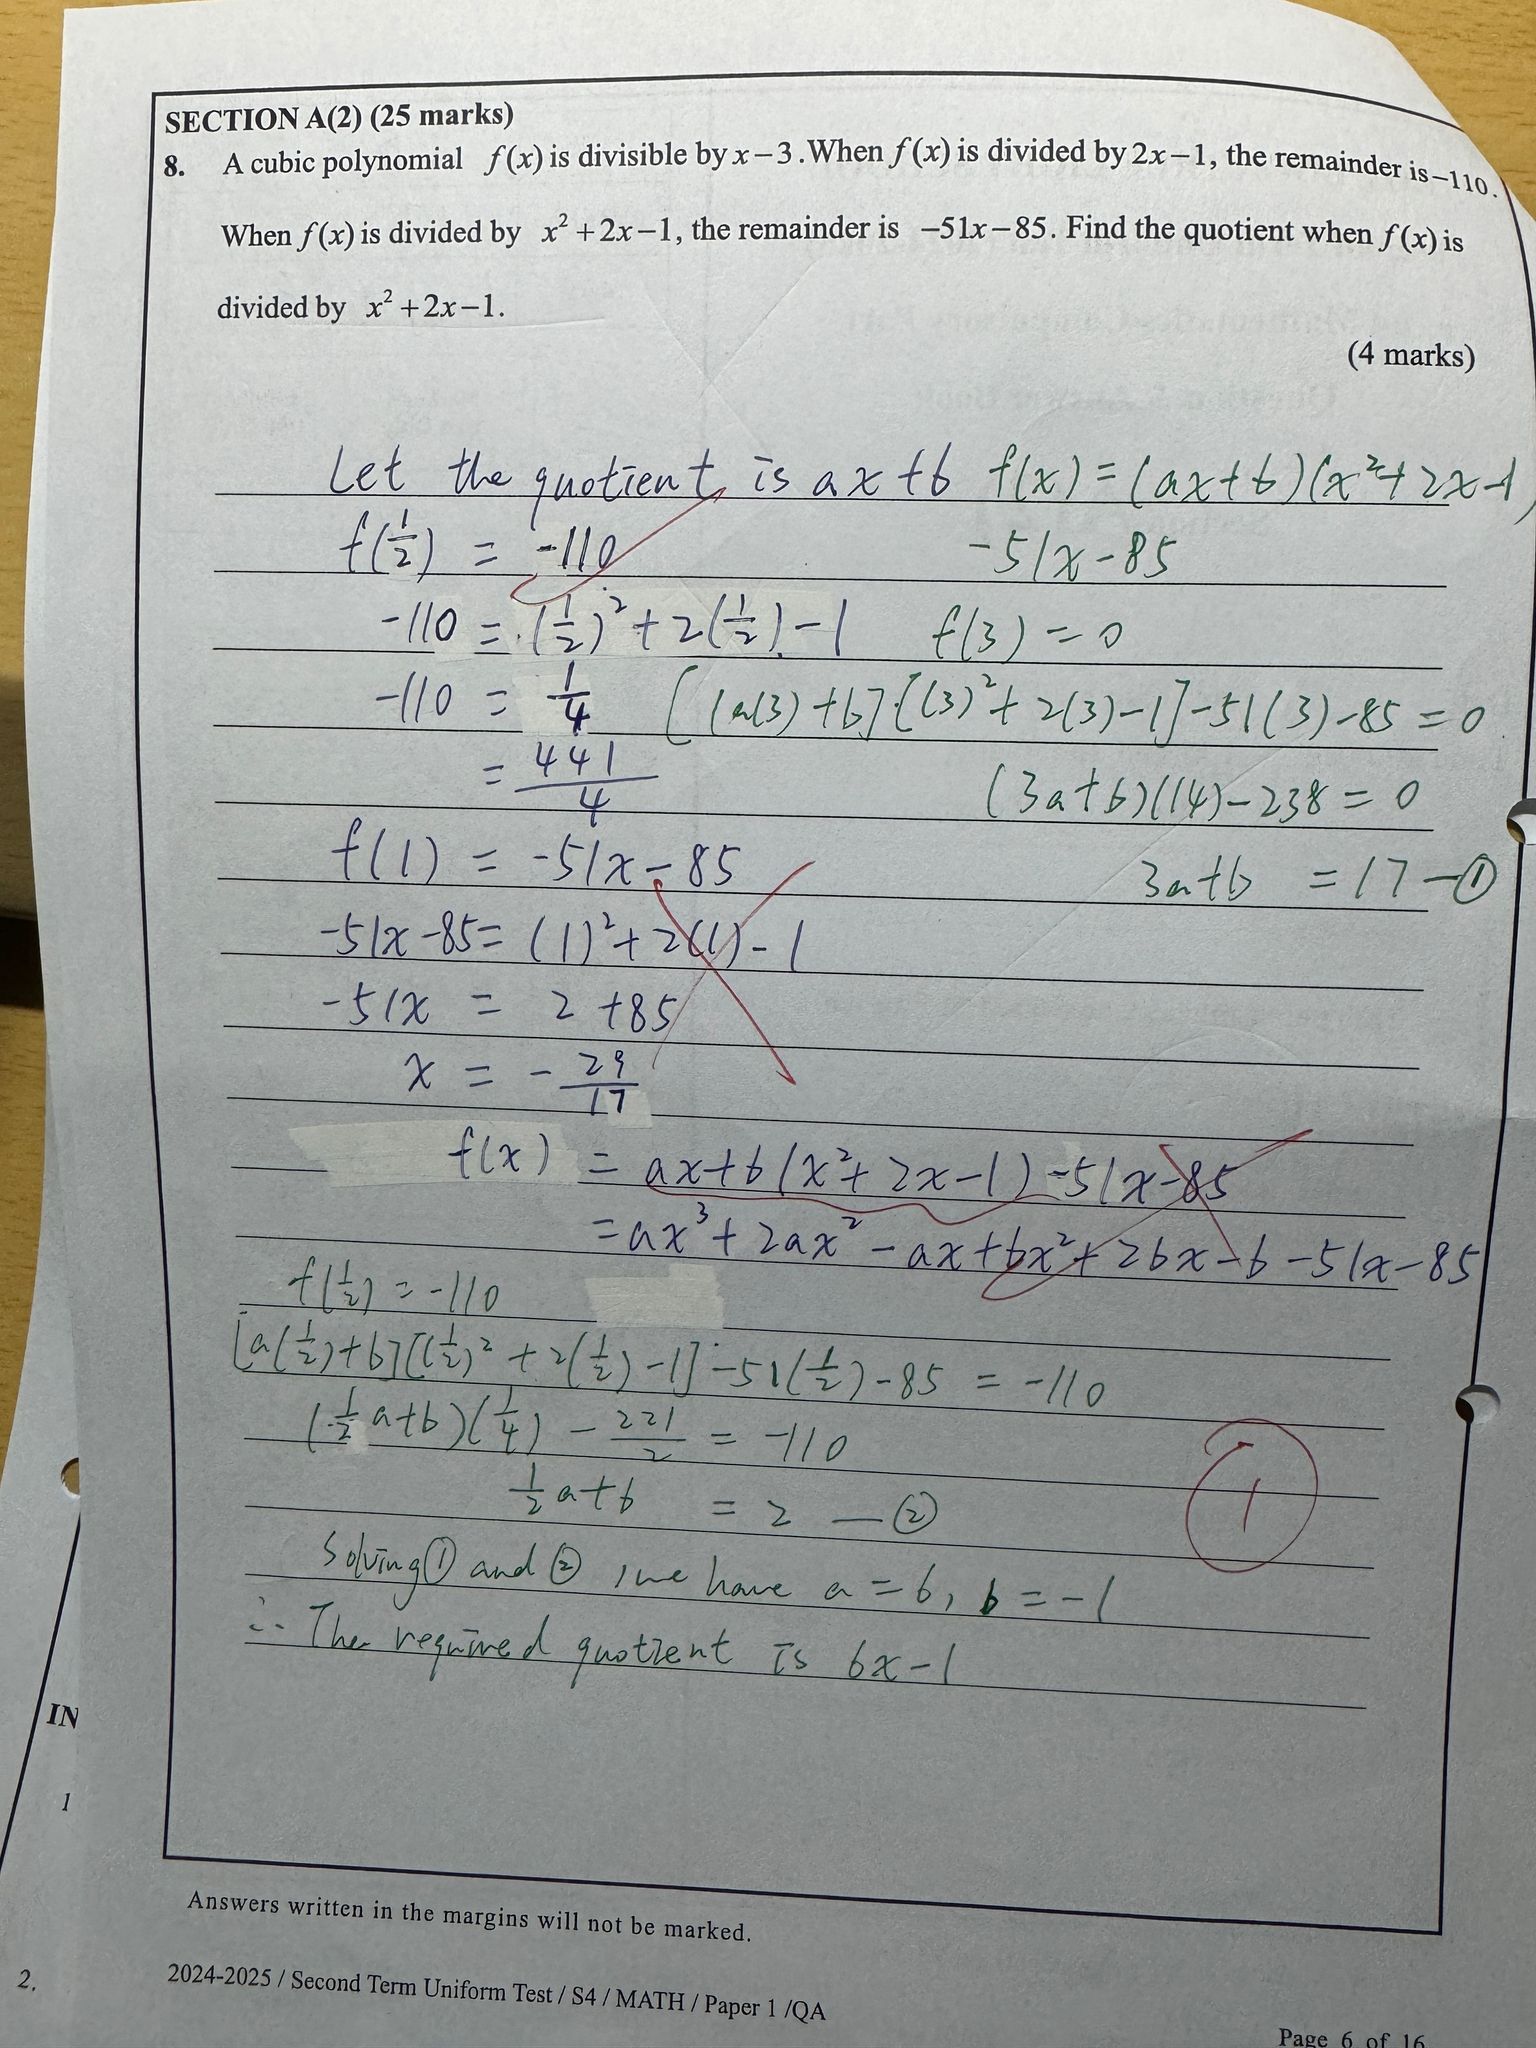 SECTION A(2) (25 marks)
8. A cubic polynomial f(x) is divisible by x−3. When f(x) is divided by 2x−1, the remainder is −110.
When f(x) is divided by x²+2x−1, the remainder is −51x−85. Find the quotient when f(x) is
divided by x²+2x−1.
(4 marks)
Let the quotient is ax+b f(x)=(ax+b)(x²+2x-1)
-51x-85
f(1/2) = -110
-110 = (1/2)²+2(1/2)-1
f(3)=0
-110 = 1/4
[(a(3)+b][(3)²+2(3)-1]-51(3)-85=0
= 441/4
(3a+b)(14)-238=0
f(1) = -51x-85
3a+b =17-①
-51x-85=(1)²+2(1)-1
-51x = 2+85
x = -29/17
f(x) = ax+b(x²+2x-1)-51x-85
=ax³+2ax²-ax+bx²+2bx-b-51x-85
f(1/2)=-110
[a(1/2)+b][(1/2)²+2(1/2)-1]-51(1/2)-85 = -110
(1/2a+b)(1/4) - 221/2 = -110
1/2a+b = 2 —②
Solving① and ②, we have a=6, b=-1
∴ The required quotient is 6x-1
1
Answers written in the margins will not be marked.
2024-2025 / Second Term Uniform Test / S4 / MATH / Paper 1 /QA
Page 6 of 16
IN
1
2.